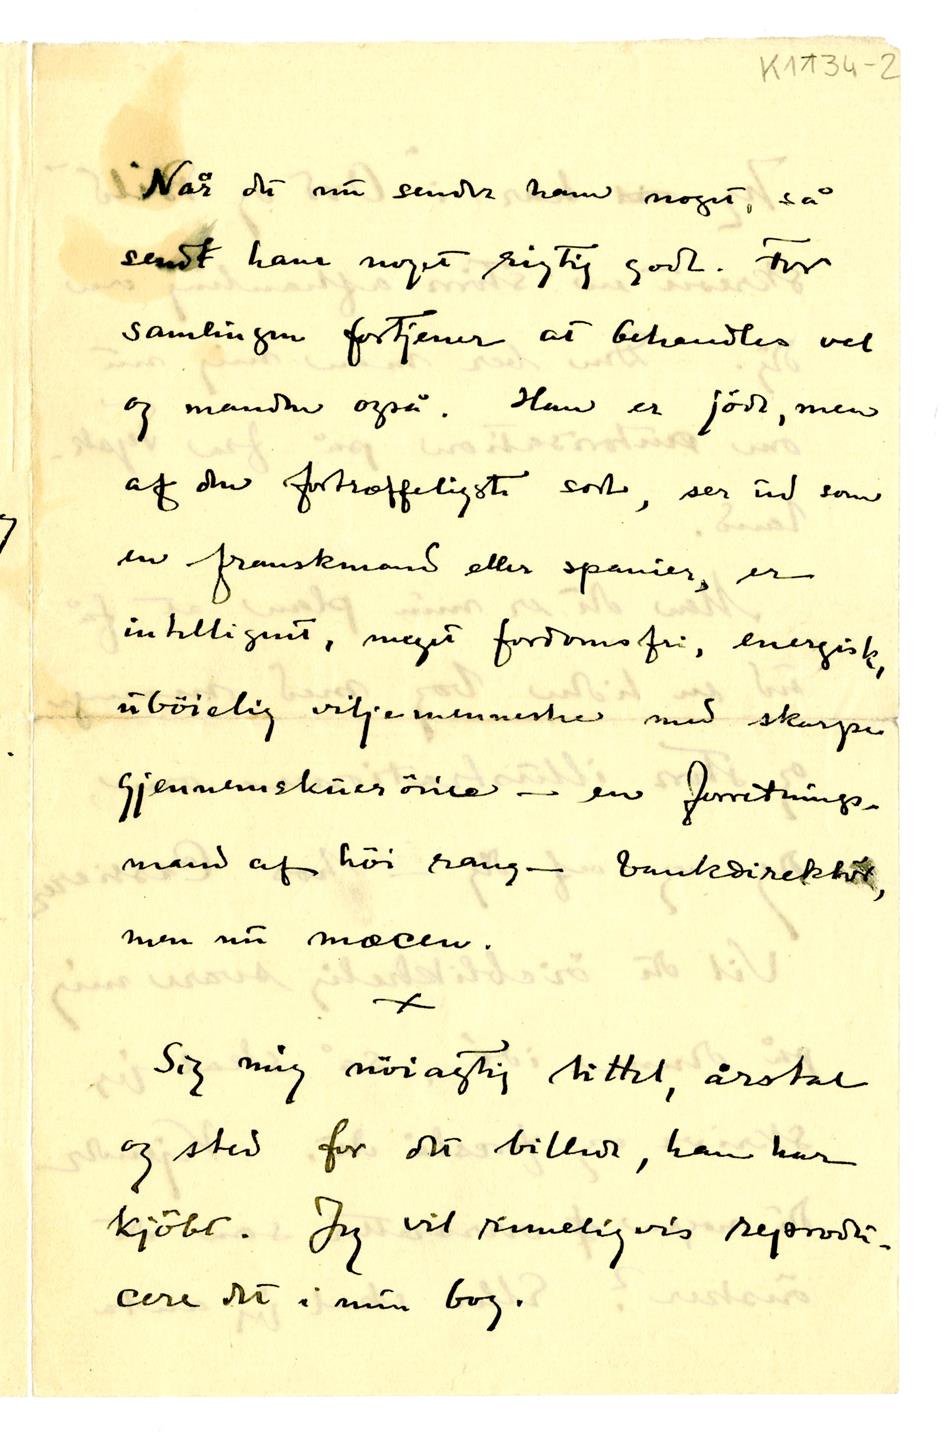 K 1734-2
Når du nu sender ham noget, så
send ham noget rigtig godt. For
samlingen fortjener at behandles vel
og manden også. Han er jöde, men
af den fortræffeligste sort, ser ud som
en franskmand eller spanier, er
intelligent, meget fordomsfri, energisk,
uböielig viljemenneske med skarpe
gjennemskuerörne – en forretnings-
mand af höi rang – bankdirektör,
men nu mæcen.
x
Sig mig nöiagtig tittel, årstal
og sted for det billede, han har
kjöbt. Jeg vil rimeligvis reprodu-
cere det i min bog.